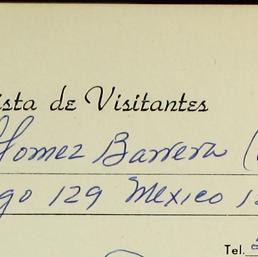 ista de Visitantes
Gomez Barrera (
go 129 Mexico 1
Tel.